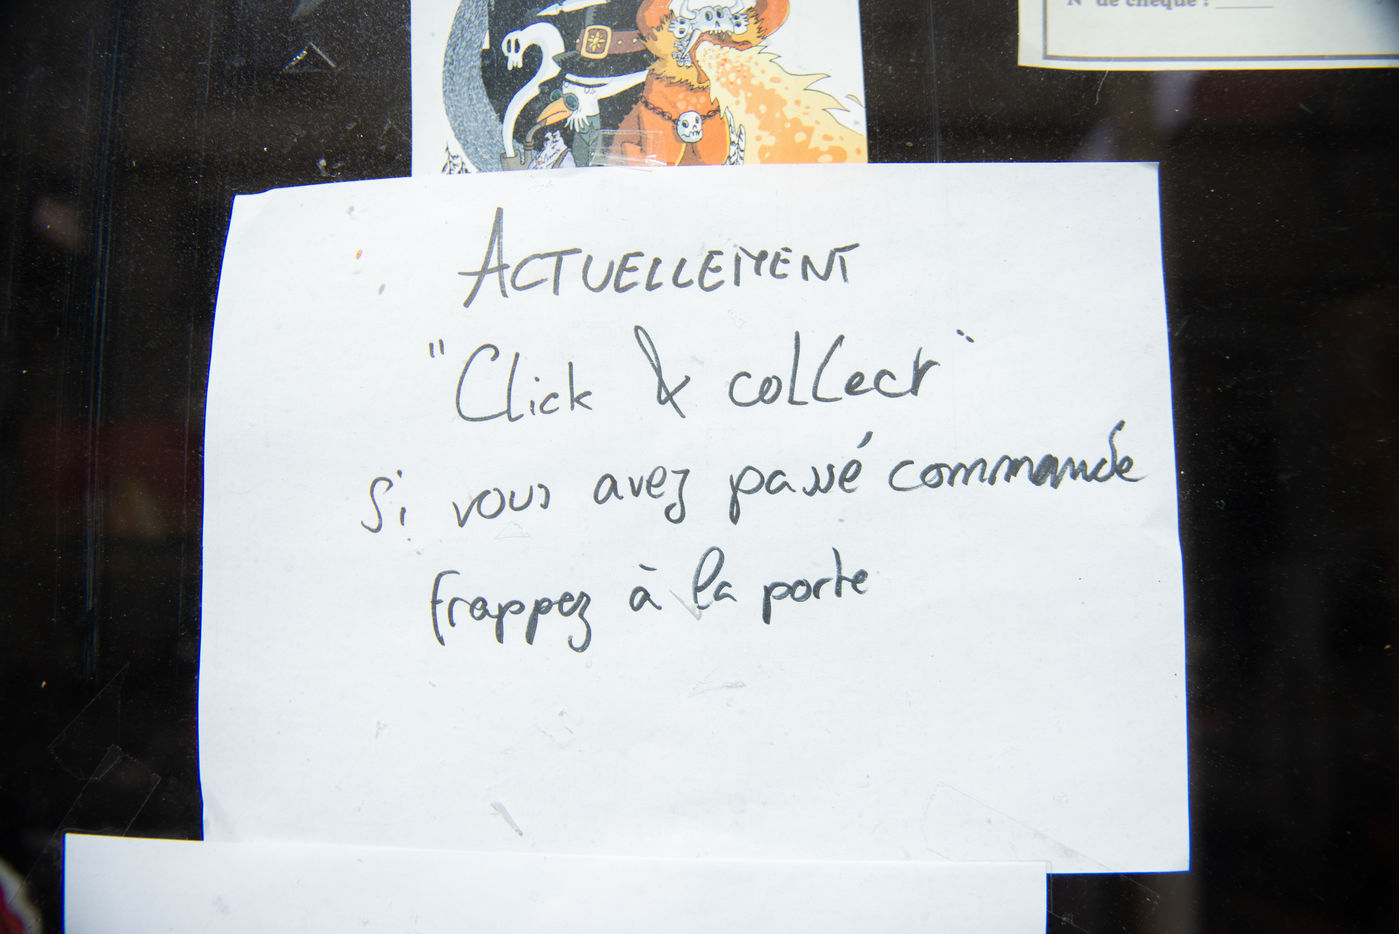 N° de chèque :
ACTUELLEMENT
"Click & collect"
Si vous avez passé commande
frappez à la porte